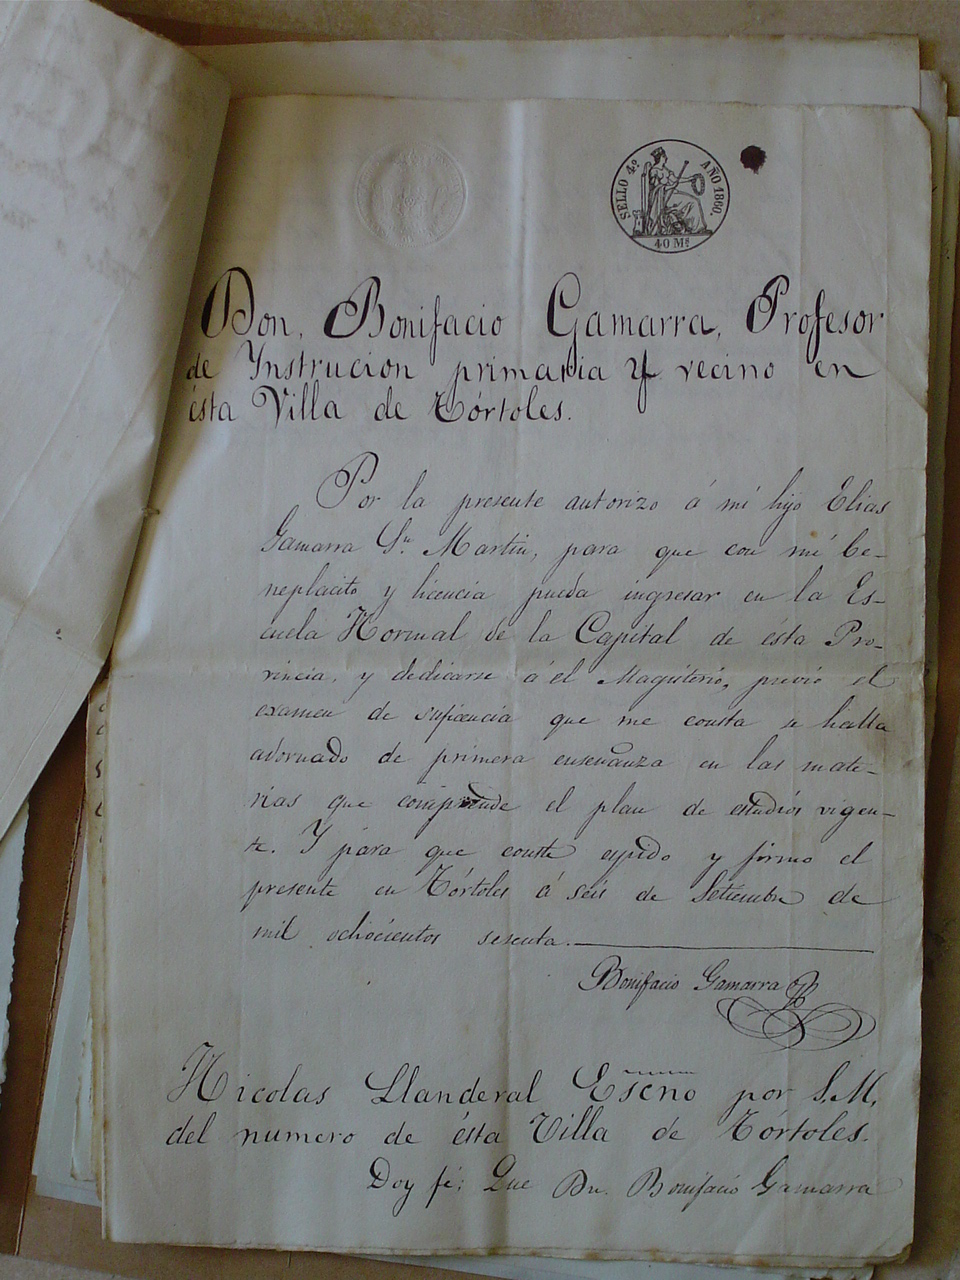 SELLO 4º AÑO 1860.
40 Ms
Don, Bonifacio Gamarra, Profesor
de Ynstrucion primaria y vecino en
ésta Villa de Tórtoles.
Por la presente autorizo á mi hijo Elias
Gamarra Sn. Martin, para que con mi be-
neplacito y licencia pueda ingresar en la Es-
cuela Normal de la Capital de ésta Pro-
vincia, y dedicarse á él Magisterio, previo el
examen de suficiencia que me consta se halla
adornado de primera enseñanza en las mate-
rias que comprende el plan de estudios vigen-
te. Y para que conste espido y firmo el
presente en Tórtoles á seis de Setiembre de
mil ochocientos sesenta.
Bonifacio Gamarra
Nicolas Llanderal Escno por S.M.
del numero de ésta Villa de Tórtoles.
Doy fé; Que Dn. Bonifacio Gamarra